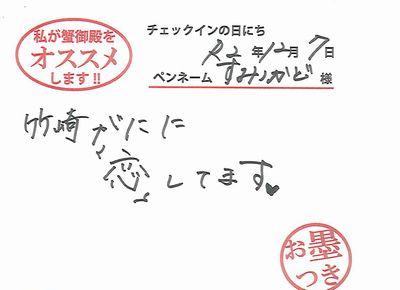 私が蟹御殿を
オススメ
します!!
チェックインの日にち
R2年12月7日
ペンネーム すみのかど 様
竹崎がにに
恋してます♥
お墨
つき